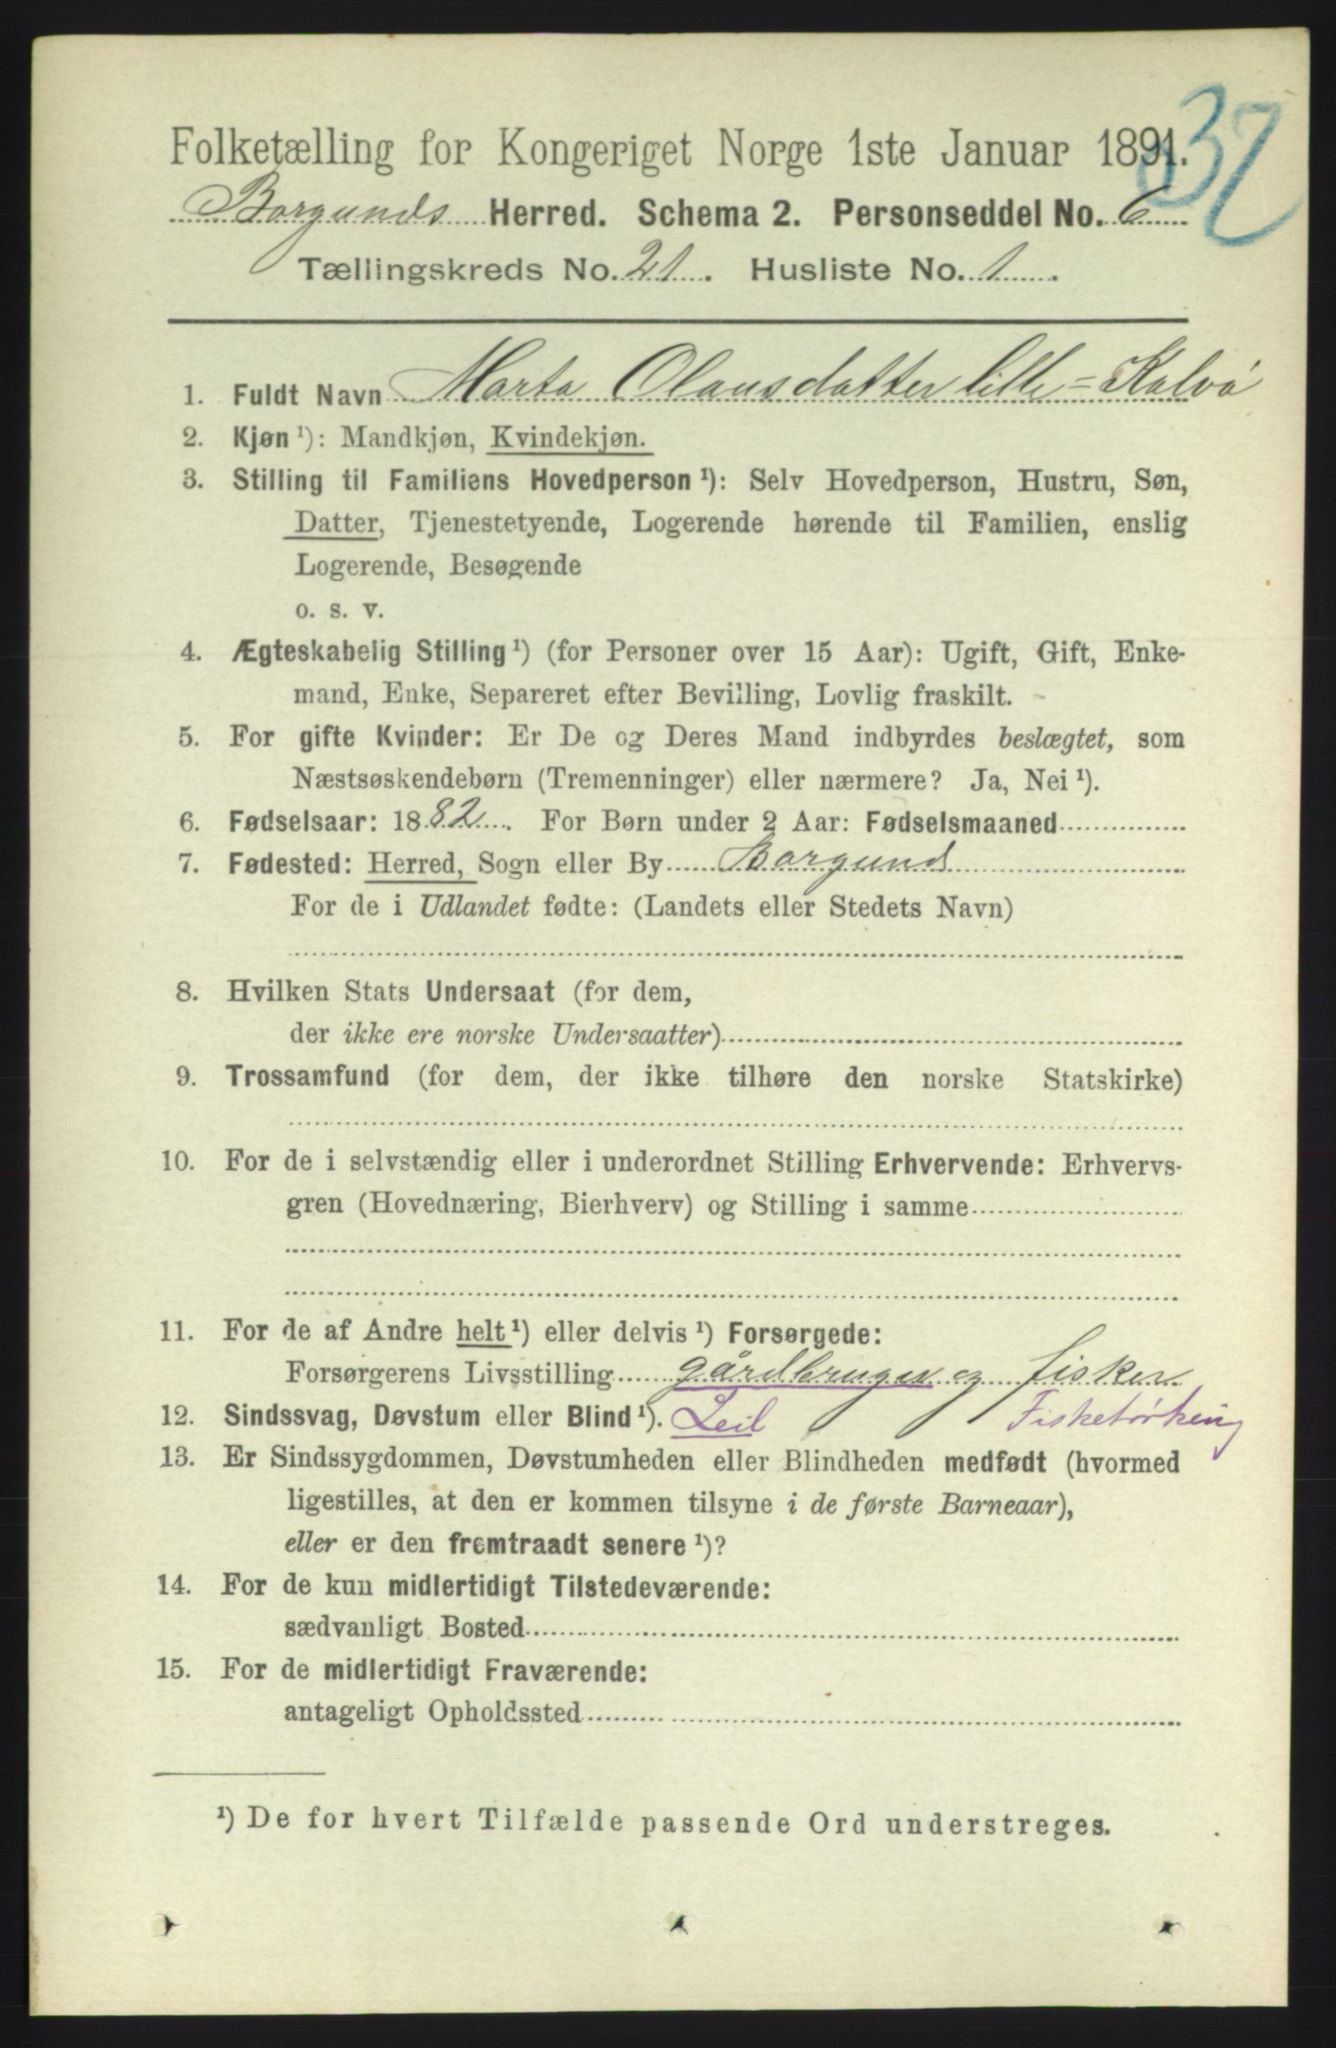 32
Folketælling for Kongeriget Norge 1ste Januar 1891.
Borgunds Herred. Schema 2. Personseddel No. 6
Tællingskreds No. 21. Husliste No. 1.
1. Fuldt Navn Marta Olausdatter lille=Kalvø
2. Kjøn ¹): Mandkjøn, Kvindekjøn.
3. Stilling til Familiens Hovedperson ¹): Selv Hovedperson, Hustru, Søn,
Datter, Tjenestetyende, Logerende hørende til Familien, enslig
Logerende, Besøgende
o. s. v.
4. Ægteskabelig Stilling ¹) (for Personer over 15 Aar): Ugift, Gift, Enke-
mand, Enke, Separeret efter Bevilling, Lovlig fraskilt.
5. For gifte Kvinder: Er De og Deres Mand indbyrdes beslægtet, som
Næstsøskendebørn (Tremenninger) eller nærmere? Ja, Nei ¹).
6. Fødselsaar: 1882. For Børn under 2 Aar: Fødselsmaaned
7. Fødested: Herred, Sogn eller By Borgund
For de i Udlandet fødte: (Landets eller Stedets Navn)
8. Hvilken Stats Undersaat (for dem,
der ikke ere norske Undersaatter)
9. Trossamfund (for dem, der ikke tilhøre den norske Statskirke)
10. For de i selvstændig eller i underordnet Stilling Erhvervende: Erhvervs-
gren (Hovednæring, Bierhverv) og Stilling i samme
11. For de af Andre helt ¹) eller delvis ¹) Forsørgede:
Forsørgerens Livsstilling gårdbruger og fisker
12. Sindssvag, Døvstum eller Blind ¹). Leil Fisketørking
13. Er Sindssygdommen, Døvstumheden eller Blindheden medfødt (hvormed
ligestilles, at den er kommen tilsyne i de første Barneaar),
eller er den fremtraadt senere ¹)?
14. For de kun midlertidigt Tilstedeværende:
sædvanligt Bosted
15. For de midlertidigt Fraværende:
antageligt Opholdssted
¹) De for hvert Tilfælde passende Ord understreges.